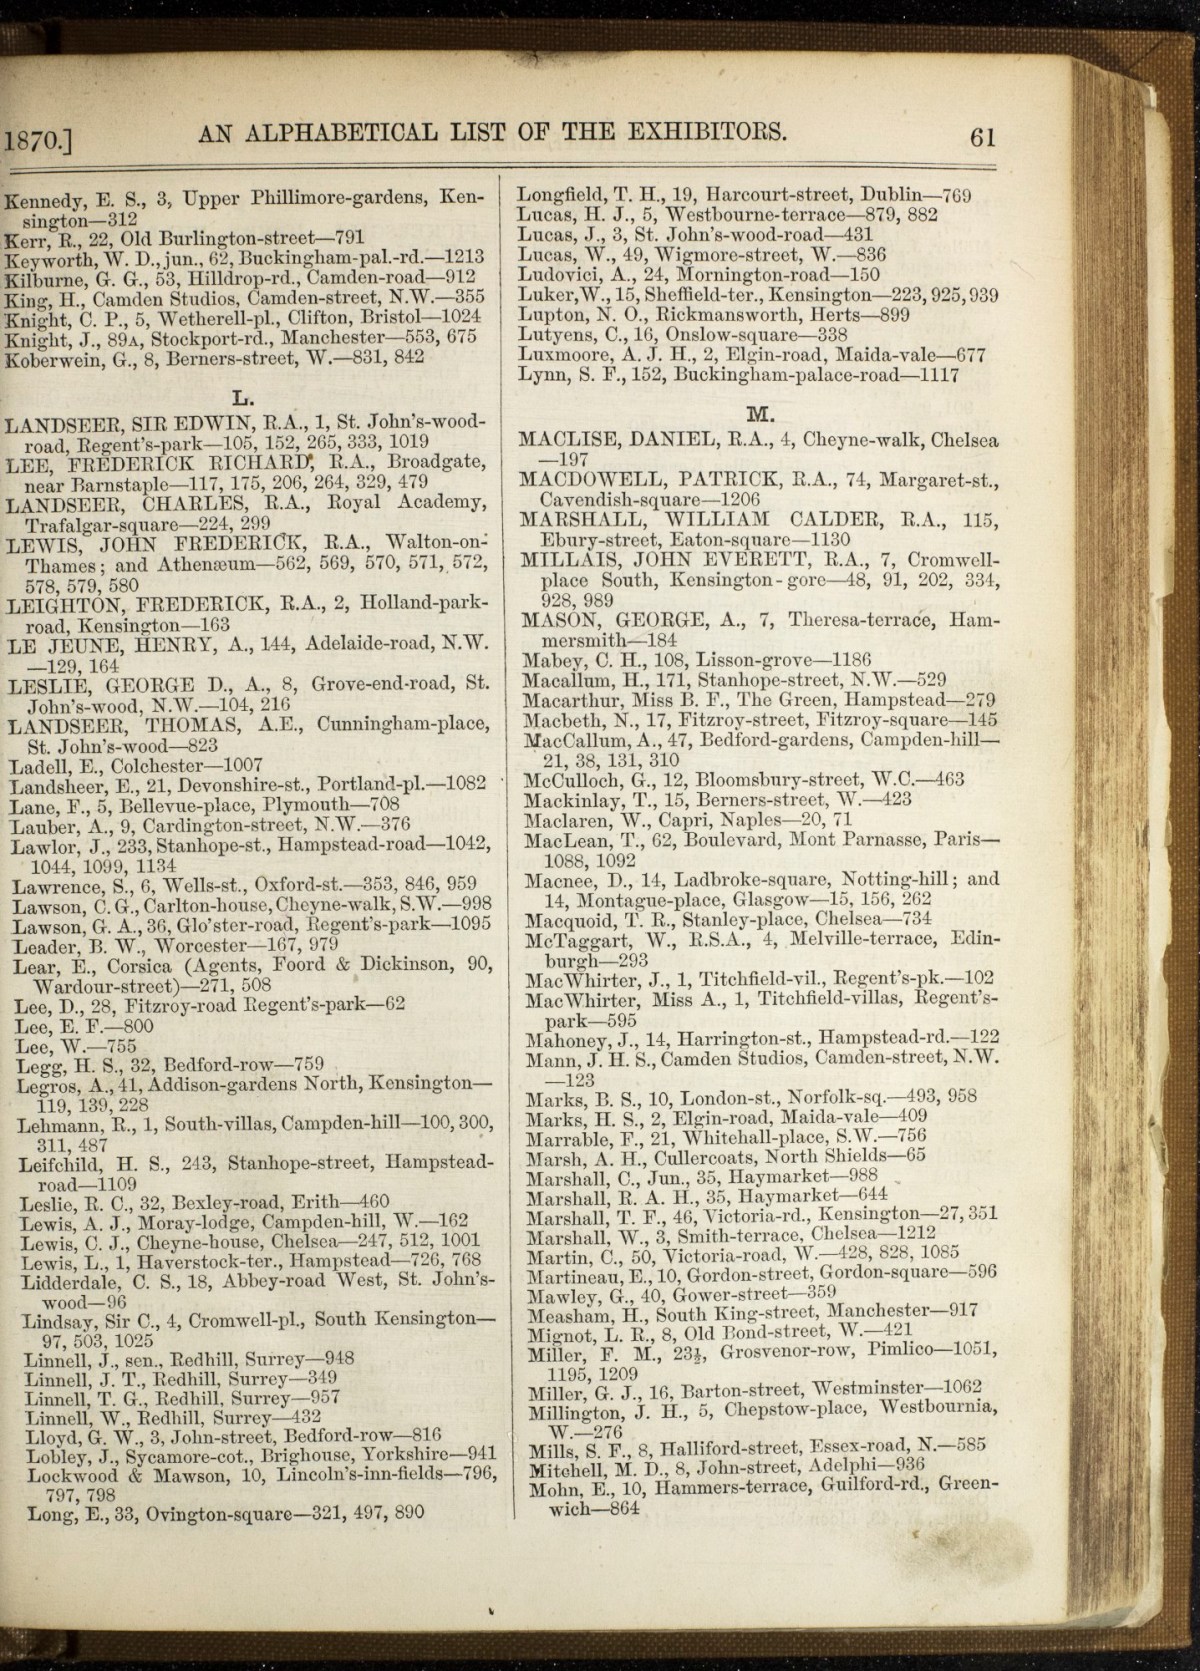 1870.] AN ALPHABETICAL LIST OF THE EXHIBITORS. 61
Kennedy, E. S., 3, Upper Phillimore-gardens, Ken-
sington—312
Kerr, R., 22, Old Burlington-street—791
Keyworth, W. D., jun., 62, Buckingham-pal.-rd.—1213
Kilburne, G. G., 53, Hilldrop-rd., Camden-road—912
King, H., Camden Studios, Camden-street, N.W.—355
Knight, C. P., 5, Wetherell-pl., Clifton, Bristol—1024
Knight, J., 89A, Stockport-rd., Manchester—553, 675
Koberwein, G., 8, Berners-street, W.—831, 842
L.
LANDSEER, SIR EDWIN, R.A., 1, St. John's-wood-
road, Regent's-park—105, 152, 265, 333, 1019
LEE, FREDERICK RICHARD, R.A., Broadgate,
near Barnstaple—117, 175, 206, 264, 329, 479
LANDSEER, CHARLES, R.A., Royal Academy,
Trafalgar-square—224, 299
LEWIS, JOHN FREDERICK, R.A., Walton-on-
Thames; and Athenæum—562, 569, 570, 571, 572,
578, 579, 580
LEIGHTON, FREDERICK, R.A., 2, Holland-park-
road, Kensington—163
LE JEUNE, HENRY, A., 144, Adelaide-road, N.W.
—129, 164
LESLIE, GEORGE D., A., 8, Grove-end-road, St.
John's-wood, N.W.—104, 216
LANDSEER, THOMAS, A.E., Cunningham-place,
St. John's-wood—823
Ladell, E., Colchester—1007
Landsheer, E., 21, Devonshire-st., Portland-pl.—1082
Lane, F., 5, Bellevue-place, Plymouth—708
Lauber, A., 9, Cardington-street, N.W.—376
Lawlor, J., 233, Stanhope-st., Hampstead-road—1042,
1044, 1099, 1134
Lawrence, S., 6, Wells-st., Oxford-st.—353, 846, 959
Lawson, C. G., Carlton-house, Cheyne-walk, S.W.—998
Lawson, G. A., 36, Glo'ster-road, Regent's-park—1095
Leader, B. W., Worcester—167, 979
Lear, E., Corsica (Agents, Foord & Dickinson, 90,
Wardour-street)—271, 508
Lee, D., 28, Fitzroy-road Regent's-park—62
Lee, E. F.—800
Lee, W.—755
Legg, H. S., 32, Bedford-row—759
Legros, A., 41, Addison-gardens North, Kensington—
119, 139, 228
Lehmann, R., 1, South-villas, Campden-hill—100, 300,
311, 487
Leifchild, H. S., 243, Stanhope-street, Hampstead-
road—1109
Leslie, R. C., 32, Bexley-road, Erith—460
Lewis, A. J., Moray-lodge, Campden-hill, W.—162
Lewis, C. J., Cheyne-house, Chelsea—247, 512, 1001
Lewis, L., 1, Haverstock-ter., Hampstead—726, 768
Lidderdale, C. S., 18, Abbey-road West, St. John's-
wood—96
Lindsay, Sir C., 4, Cromwell-pl., South Kensington—
97, 503, 1025
Linnell, J., sen., Redhill, Surrey—948
Linnell, J. T., Redhill, Surrey—349
Linnell, T. G., Redhill, Surrey—957
Linnell, W., Redhill, Surrey—432
Lloyd, G. W., 3, John-street, Bedford-row—816
Lobley, J., Sycamore-cot., Brighouse, Yorkshire—941
Lockwood & Mawson, 10, Lincoln's-inn-fields—796,
797, 798
Long, E., 33, Ovington-square—321, 497, 890
Longfield, T. H., 19, Harcourt-street, Dublin—769
Lucas, H. J., 5, Westbourne-terrace—879, 882
Lucas, J., 3, St. John's-wood-road—431
Lucas, W., 49, Wigmore-street, W.—836
Ludovici, A., 24, Mornington-road—150
Luker, W., 15, Sheffield-ter., Kensington—223, 925, 939
Lupton, N. O., Rickmansworth, Herts—899
Lutyens, C., 16, Onslow-square—338
Luxmoore, A. J. H., 2, Elgin-road, Maida-vale—677
Lynn, S. F., 152, Buckingham-palace-road—1117
M.
MACLISE, DANIEL, R.A., 4, Cheyne-walk, Chelsea
—197
MACDOWELL, PATRICK, R.A., 74, Margaret-st.,
Cavendish-square—1206
MARSHALL, WILLIAM CALDER, R.A., 115,
Ebury-street, Eaton-square—1130
MILLAIS, JOHN EVERETT, R.A., 7, Cromwell-
place South, Kensington-gore—48, 91, 202, 334,
928, 989
MASON, GEORGE, A., 7, Theresa-terrace, Ham-
mersmith—184
Mabey, C. H., 108, Lisson-grove—1186
Macallum, H., 171, Stanhope-street, N.W.—529
Macarthur, Miss B. F., The Green, Hampstead—279
Macbeth, N., 17, Fitzroy-street, Fitzroy-square—145
MacCallum, A., 47, Bedford-gardens, Campden-hill—
21, 38, 131, 310
McCulloch, G., 12, Bloomsbury-street, W.C.—463
Mackinlay, T., 15, Berners-street, W.—423
Maclaren, W., Capri, Naples—20, 71
MacLean, T., 62, Boulevard, Mont Parnasse, Paris—
1088, 1092
Macnee, D., 14, Ladbroke-square, Notting-hill; and
14, Montague-place, Glasgow—15, 156, 262
Macquoid, T. R., Stanley-place, Chelsea—734
McTaggart, W., R.S.A., 4, Melville-terrace, Edin-
burgh—293
MacWhirter, J., 1, Titchfield-vil., Regent's-pk.—102
MacWhirter, Miss A., 1, Titchfield-villas, Regent's-
park—595
Mahoney, J., 14, Harrington-st., Hampstead-rd.—122
Mann, J. H. S., Camden Studios, Camden-street, N.W.
—123
Marks, B. S., 10, London-st., Norfolk-sq.—493, 958
Marks, H. S., 2, Elgin-road, Maida-vale—409
Marrable, F., 21, Whitehall-place, S.W.—756
Marsh, A. H., Cullercoats, North Shields—65
Marshall, C., Jun., 35, Haymarket—988
Marshall, R. A. H., 35, Haymarket—644
Marshall, T. F., 46, Victoria-rd., Kensington—27, 351
Marshall, W., 3, Smith-terrace, Chelsea—1212
Martin, C., 50, Victoria-road, W.—428, 828, 1085
Martineau, E., 10, Gordon-street, Gordon-square—596
Mawley, G., 40, Gower-street—359
Measham, H., South King-street, Manchester—917
Mignot, L. R., 8, Old Bond-street, W.—421
Miller, F. M., 23½, Grosvenor-row, Pimlico—1051,
1195, 1209
Miller, G. J., 16, Barton-street, Westminster—1062
Millington, J. H., 5, Chepstow-place, Westbournia,
W.—276
Mills, S. F., 8, Halliford-street, Essex-road, N.—585
Mitchell, M. D., 8, John-street, Adelphi—936
Mohn, E., 10, Hammers-terrace, Guilford-rd., Green-
wich—864